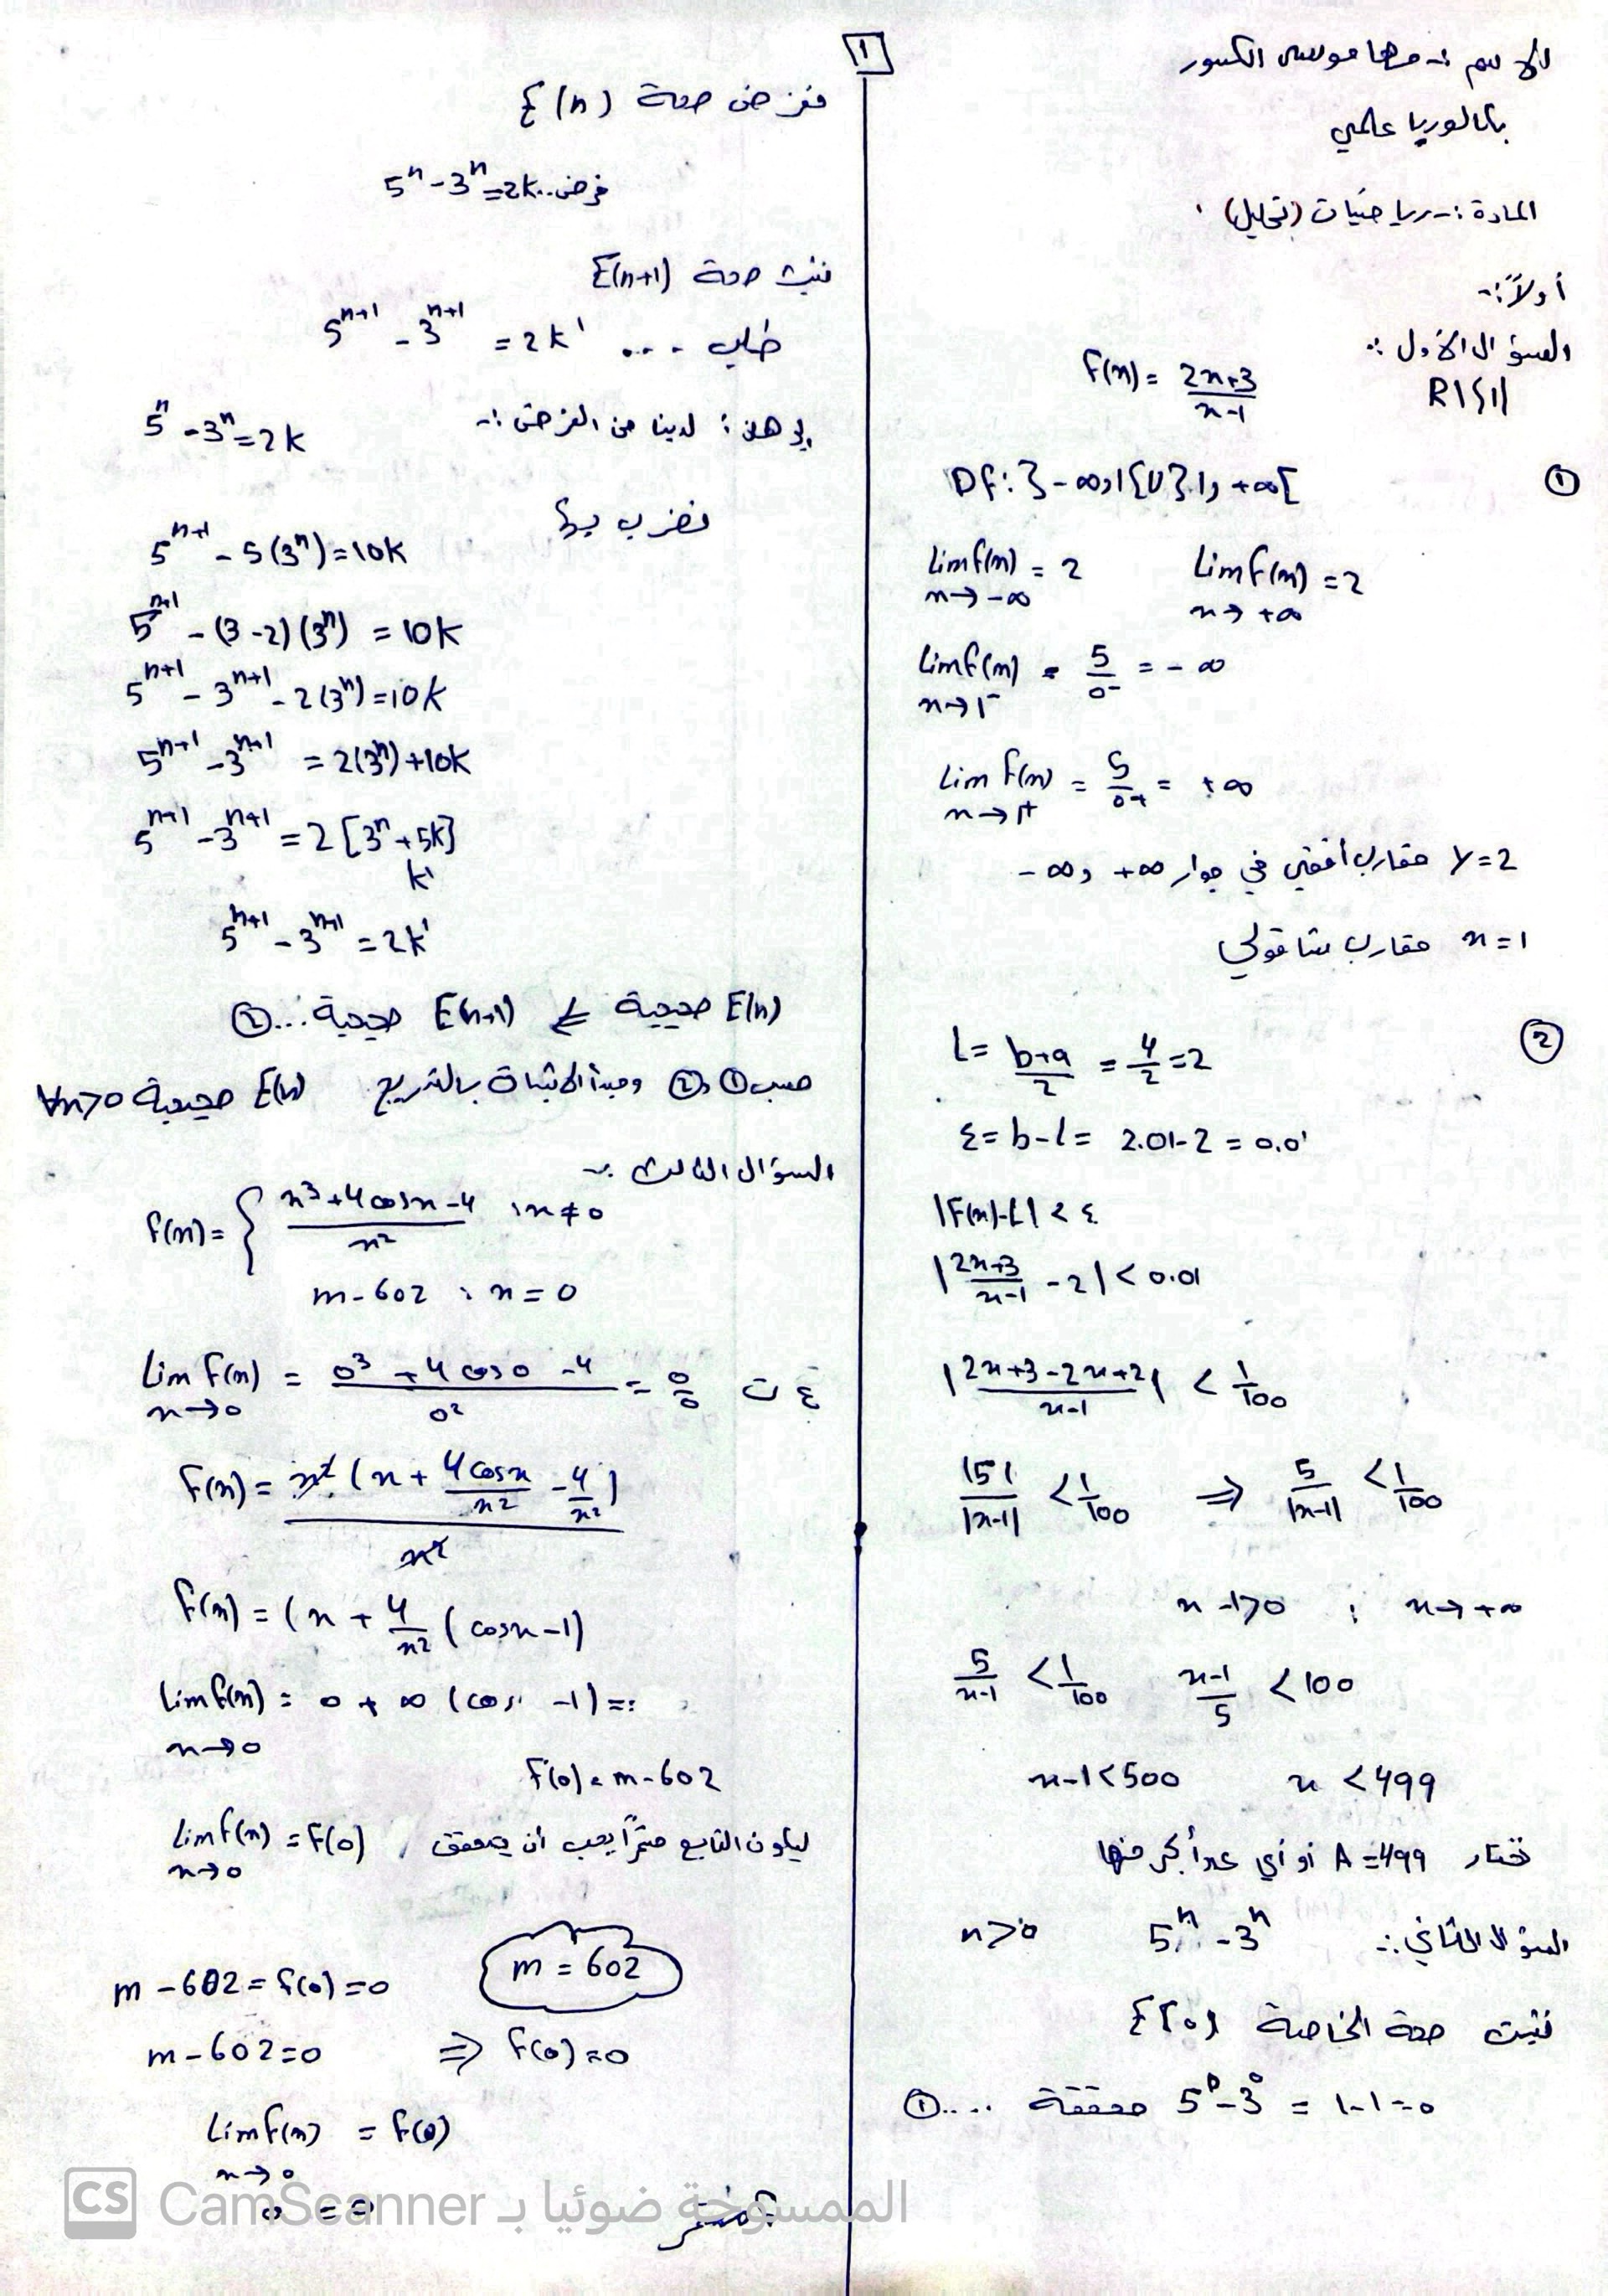 1
الاسم :- مها موسى الكسور
بكالوريا علمي
المادة :- رياضيات (تحليل)
أولاً :-
السؤال الأول :-
f(x) = \frac{2x+3}{x-1} R\{1}
① Df: ]-∞, 1[ U ]1, +∞[
Lim f(x) = 2 Lim f(x) = 2
x→-∞ x→+∞
Lim f(x) = \frac{5}{0^-} = -∞
x→1^-
Lim f(x) = \frac{5}{0^+} = +∞
x→1^+
y=2 مقارب أفقي في جوار +∞ و -∞
x=1 مقارب شاقولي
② L = \frac{b+a}{2} = \frac{4}{2} = 2
ε = b-l = 2.01-2 = 0.01
|F(x)-L| < ε
|\frac{2x+3}{x-1} - 2| < 0.01
|\frac{2x+3-2x+2}{x-1}| < \frac{1}{100}
\frac{|5|}{|x-1|} < \frac{1}{100} ⇒ \frac{5}{|x-1|} < \frac{1}{100}
x-1>0 ; x→+∞
\frac{5}{x-1} < \frac{1}{100} \frac{x-1}{5} < 100
x-1<500 x <499
نختار A=499 أو أي عدد أكبر منها
السؤال الثاني :- 5^n - 3^n n>0
نثبت صحة الخاصة E(0)
5^0 - 3^0 = 1-1=0 محققة .... ①
نفرض صحة E(n)
5^n - 3^n = 2k .. فرض
نثبت صحة E(n+1)
5^{n+1} - 3^{n+1} = 2k' .... طلب
لدينا من الفرض :- 5^n - 3^n = 2k
نضرب بـ 5
5^{n+1} - 5(3^n) = 10k
5^{n+1} - (3-2)(3^n) = 10k
5^{n+1} - 3^{n+1} - 2(3^n) = 10k
5^{n+1} - 3^{n+1} = 2(3^n) + 10k
5^{n+1} - 3^{n+1} = 2[3^n + 5k]
k'
5^{n+1} - 3^{n+1} = 2k'
E(n) صحيحة ⇐ E(n+1) صحيحة ... ②
حسب ① و ② ومبدأ الاثبات بالتدريج E(n) صحيحة ∀n>0
السؤال الثالث :-
f(x) = { \frac{x^3+4cosx-4}{x^2} : x≠0
m-602 : x=0
Lim f(x) = \frac{0^3+4cos0-4}{0^2} = \frac{0}{0} ع ت
x→0
f(x) = \frac{x^2(x+\frac{4cosx}{x^2}-\frac{4}{x^2})}{x^2}
f(x) = (x + \frac{4}{x^2}(cosx-1)
Lim f(x) = 0 + ∞ (cos -1) =
x→0
f(0) = m-602
ليكون التابع مستمراً يجب أن يحقق Lim f(x) = f(0)
x→0
m-602 = f(0) = 0 m = 602
m-602=0 ⇒ f(0)=0
Lim f(x) = f(0)
x→0
0 = 0
CS CamScanner الممسوحة ضوئيا بـ